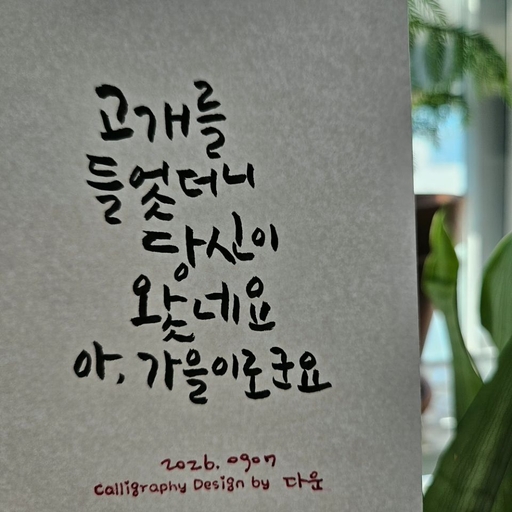 고개를
들었더니
당신이
왔네요
아, 가을이로군요
2026. 0907
Calligraphy Design by 다운